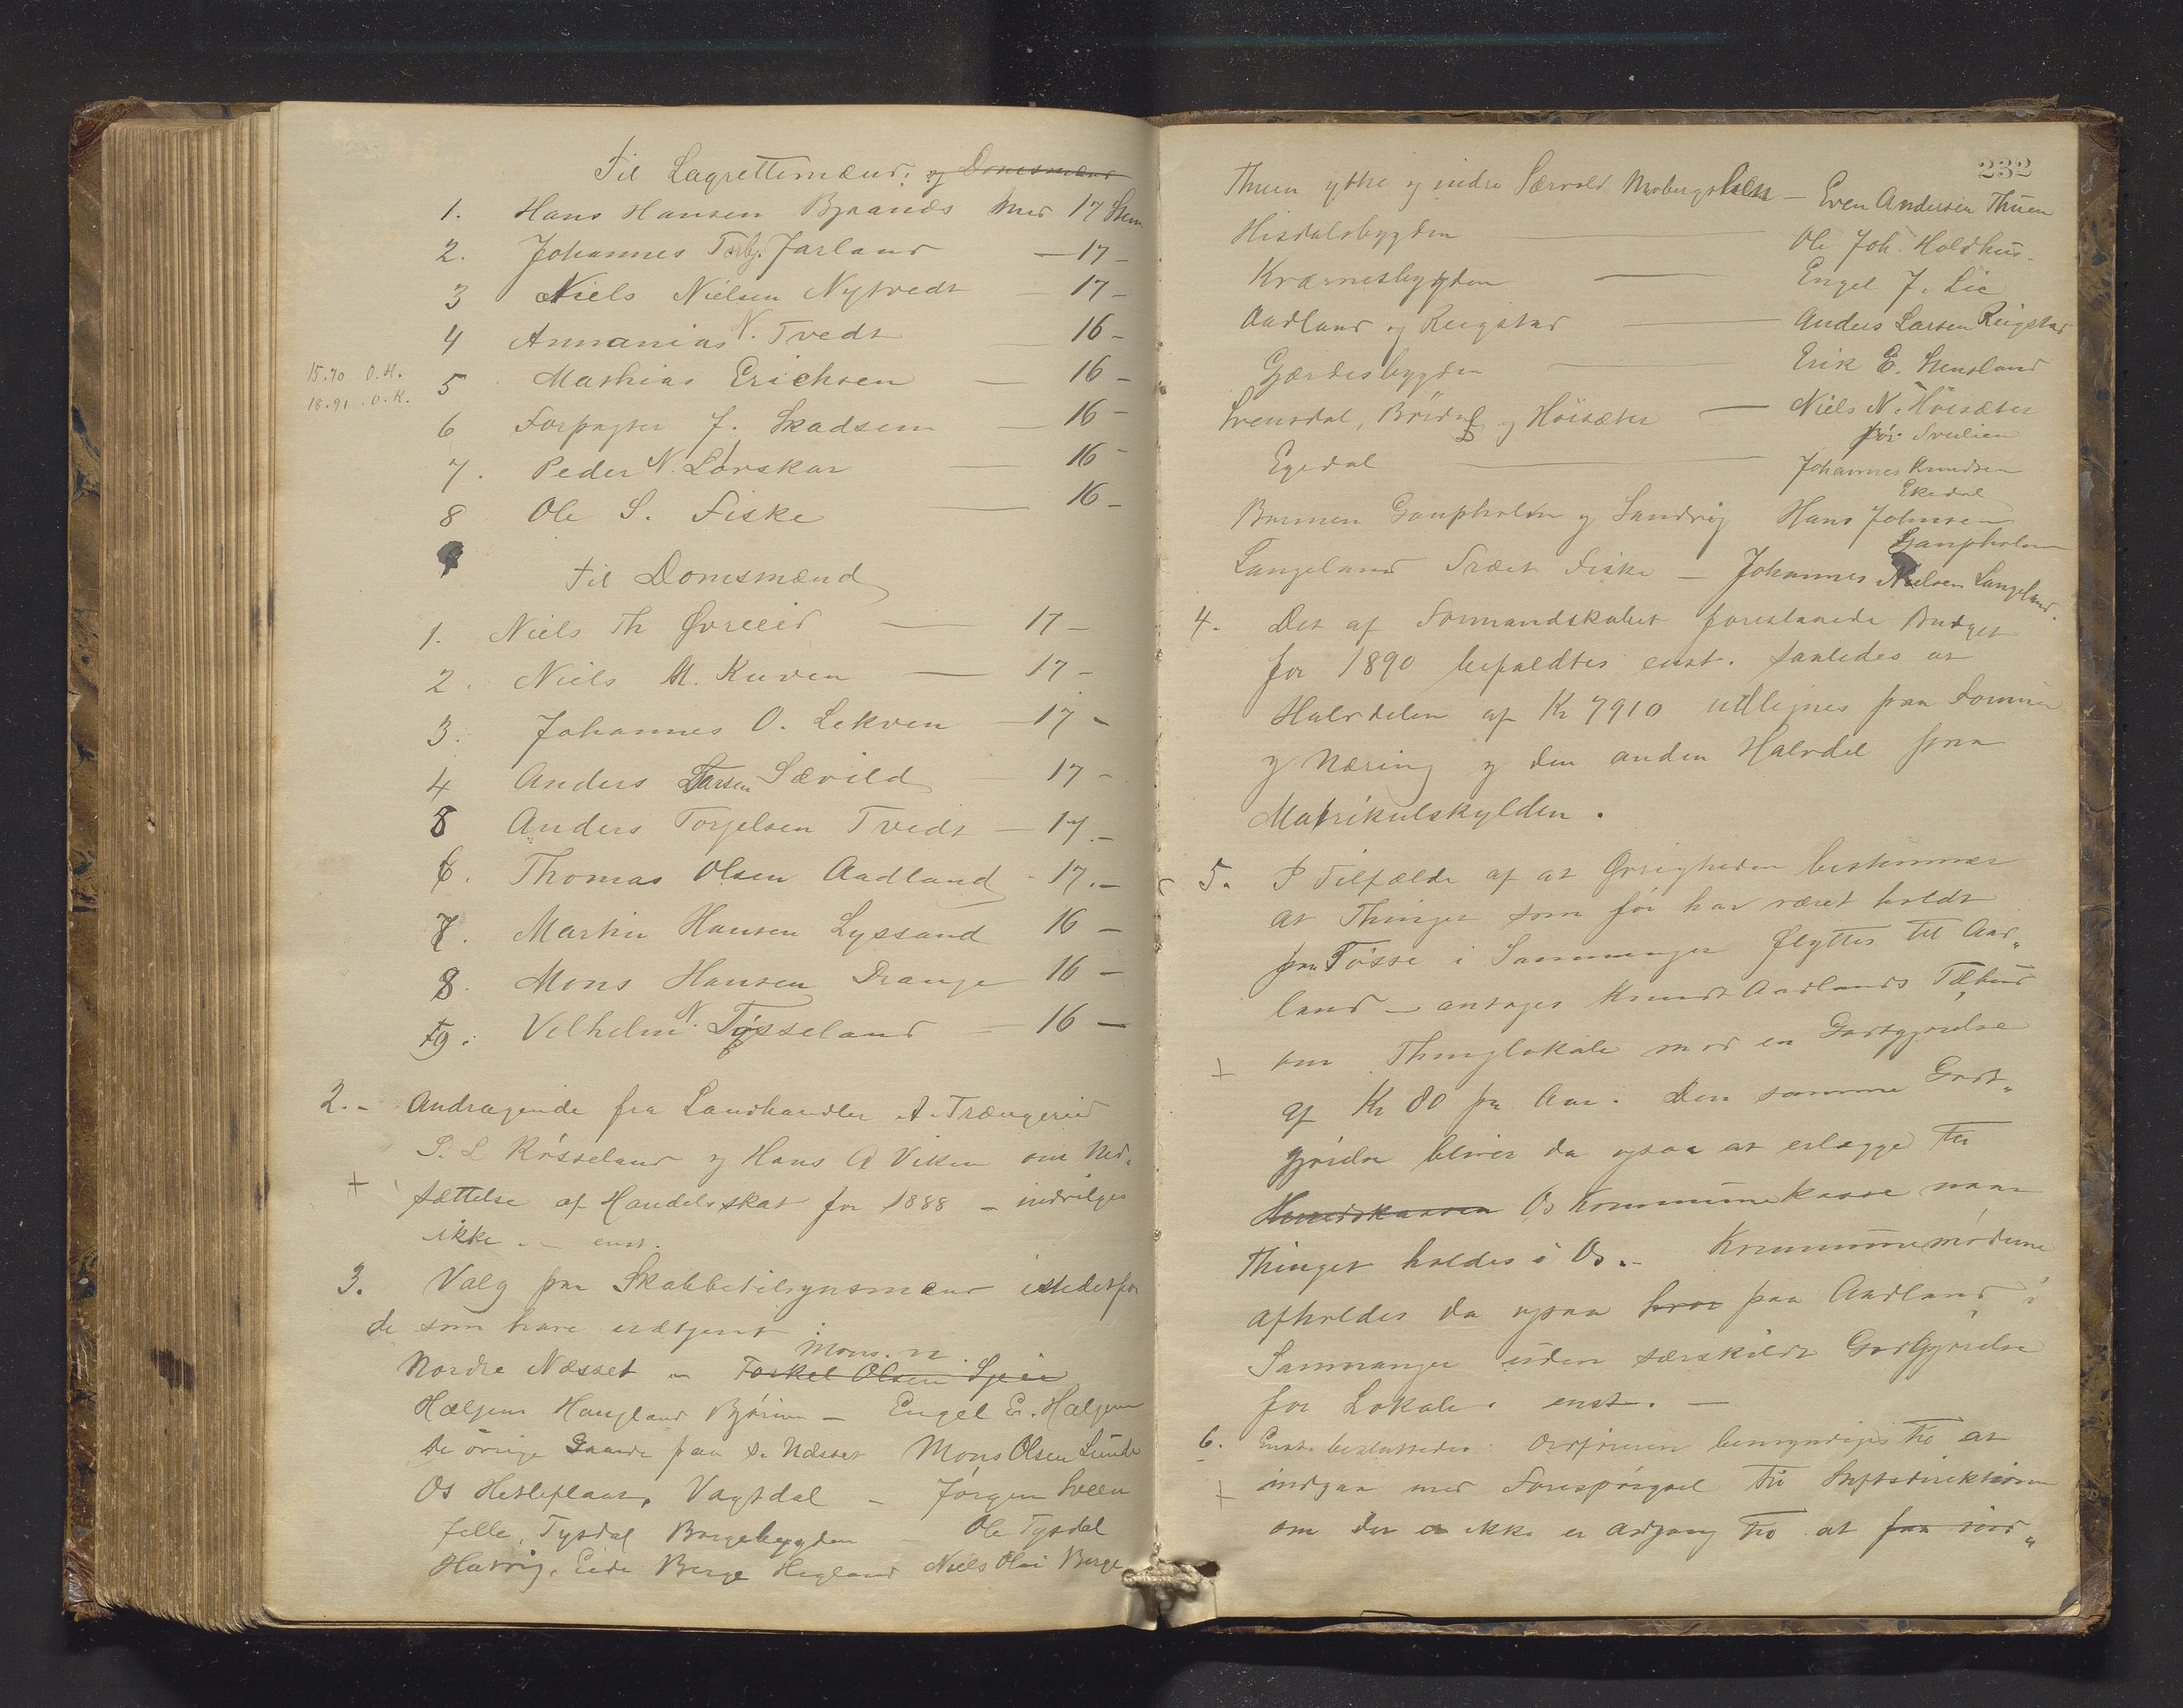 Til Lagrettemænd: og Domsmænd
1. Hans Hansen Bjaanæs med 17 Stem
2. Johannes Torbj. Jarland — 17 –
3 Niels Nielsen Nytvedt — 17 –
4 Annanias N. Tvedt — 16 –
15.70 O.H.
18.91. O.K.
5 Mathias Erichsen — 16 –
6 Forpagter J. Skadsem — 16 –
7. Peder N. Lønskar — 16 –
8 Ole S. Fiske — 16 –
Til Domsmænd
1. Niels Th Øvreeid — 17 –
2. Niels M. Kuven — 17 –
3. Johannes O. Lekven — 17 –
4 Anders Larsen Sævild — 17 –
5 Anders Torjelsen Tvedt — 17 –
6. Thomas Olsen Aadland - 17. –
7. Martin Hansen Lyssand 16 –
8. Mons Hansen Drange 16 –
9. Velhelm N. Tøsseland — 16 –
2. – Andragende fra Landhandler A. Trængereid
S. L Røsseland og Hans A Viken om Ned„
+ sættelse af Handelsskat for 1888 – indvilges
ikke. – enst.
3. Valg paa Skabbetilsynsmænd istedetfor
de som have udtjent
Mons. N
Nordre Næsset – Torkel Olsen Speie
Hæljem Haugland Bjørnen – Engel E. Hæljem
de øvrige Gaarde paa S. Næsset Mons Olsen Lunde
Os Hetleflaat, Vagtdal – Jørgen Sveen
Jelle, Tysdal Borgebygden – Ole Tysdal
Hatvig, Eide Berge Hegland Niels Olai Berge
232
Thuen ytre og indre Særvold Mobergslien – Even Andersen Thuen
Hisdalsbygden — Ole Joh. Holdhus.
Kværnesbygden — Engel J. Lie
Aadland og Reigstad — Anders Larsen Reigstad
Gjerdesbygden — Erik E. Stensland
Svensdal, Bördal og Höisæter — Niels N. Höisæter
Egedal — Johannes Knudsen
Ekedal
Barmen Gaupholm og Sandvig Hans Johnsen
Gaupholm
Langeland Træet Fiske – Johannes Nielsen Langeland.
4. Det af Formandskabet foreslaaede Budget
for 1890 befaldtes enst. saaledes at
Halvdelen af Kr 7910 udlignes paa Formue
og Næring og den anden Halvdel paa
Matrikulskylden.
5. I Tilfælde af at Øvrigheden bestemmer
at Thinget som før har været holdt
paa Tøsse i Samnanger flyttes til Aad„
land – antages Knudt Aadlands Tilbud
+ om Thinglokale mod en Godtgjørelse
af Kr 80 pr Aar. Den samme Godt„
gjørelse bliver da ogsaa at erlægge til
Herredskassen Os Kommunekasse naar
Thinget holdes i Os. – Kommunemøderne
afholdes da ogsaa hver paa Aadland i
Samnanger uden særskildt Godtgjørelse
for Lokale. enst. –
6. Enst. besluttedes: Ordføreren bemyndiges til at
+ indgaa med Forespørgsel til Stiftsdirektionen
om der ikke er Adgang til at faa ind„